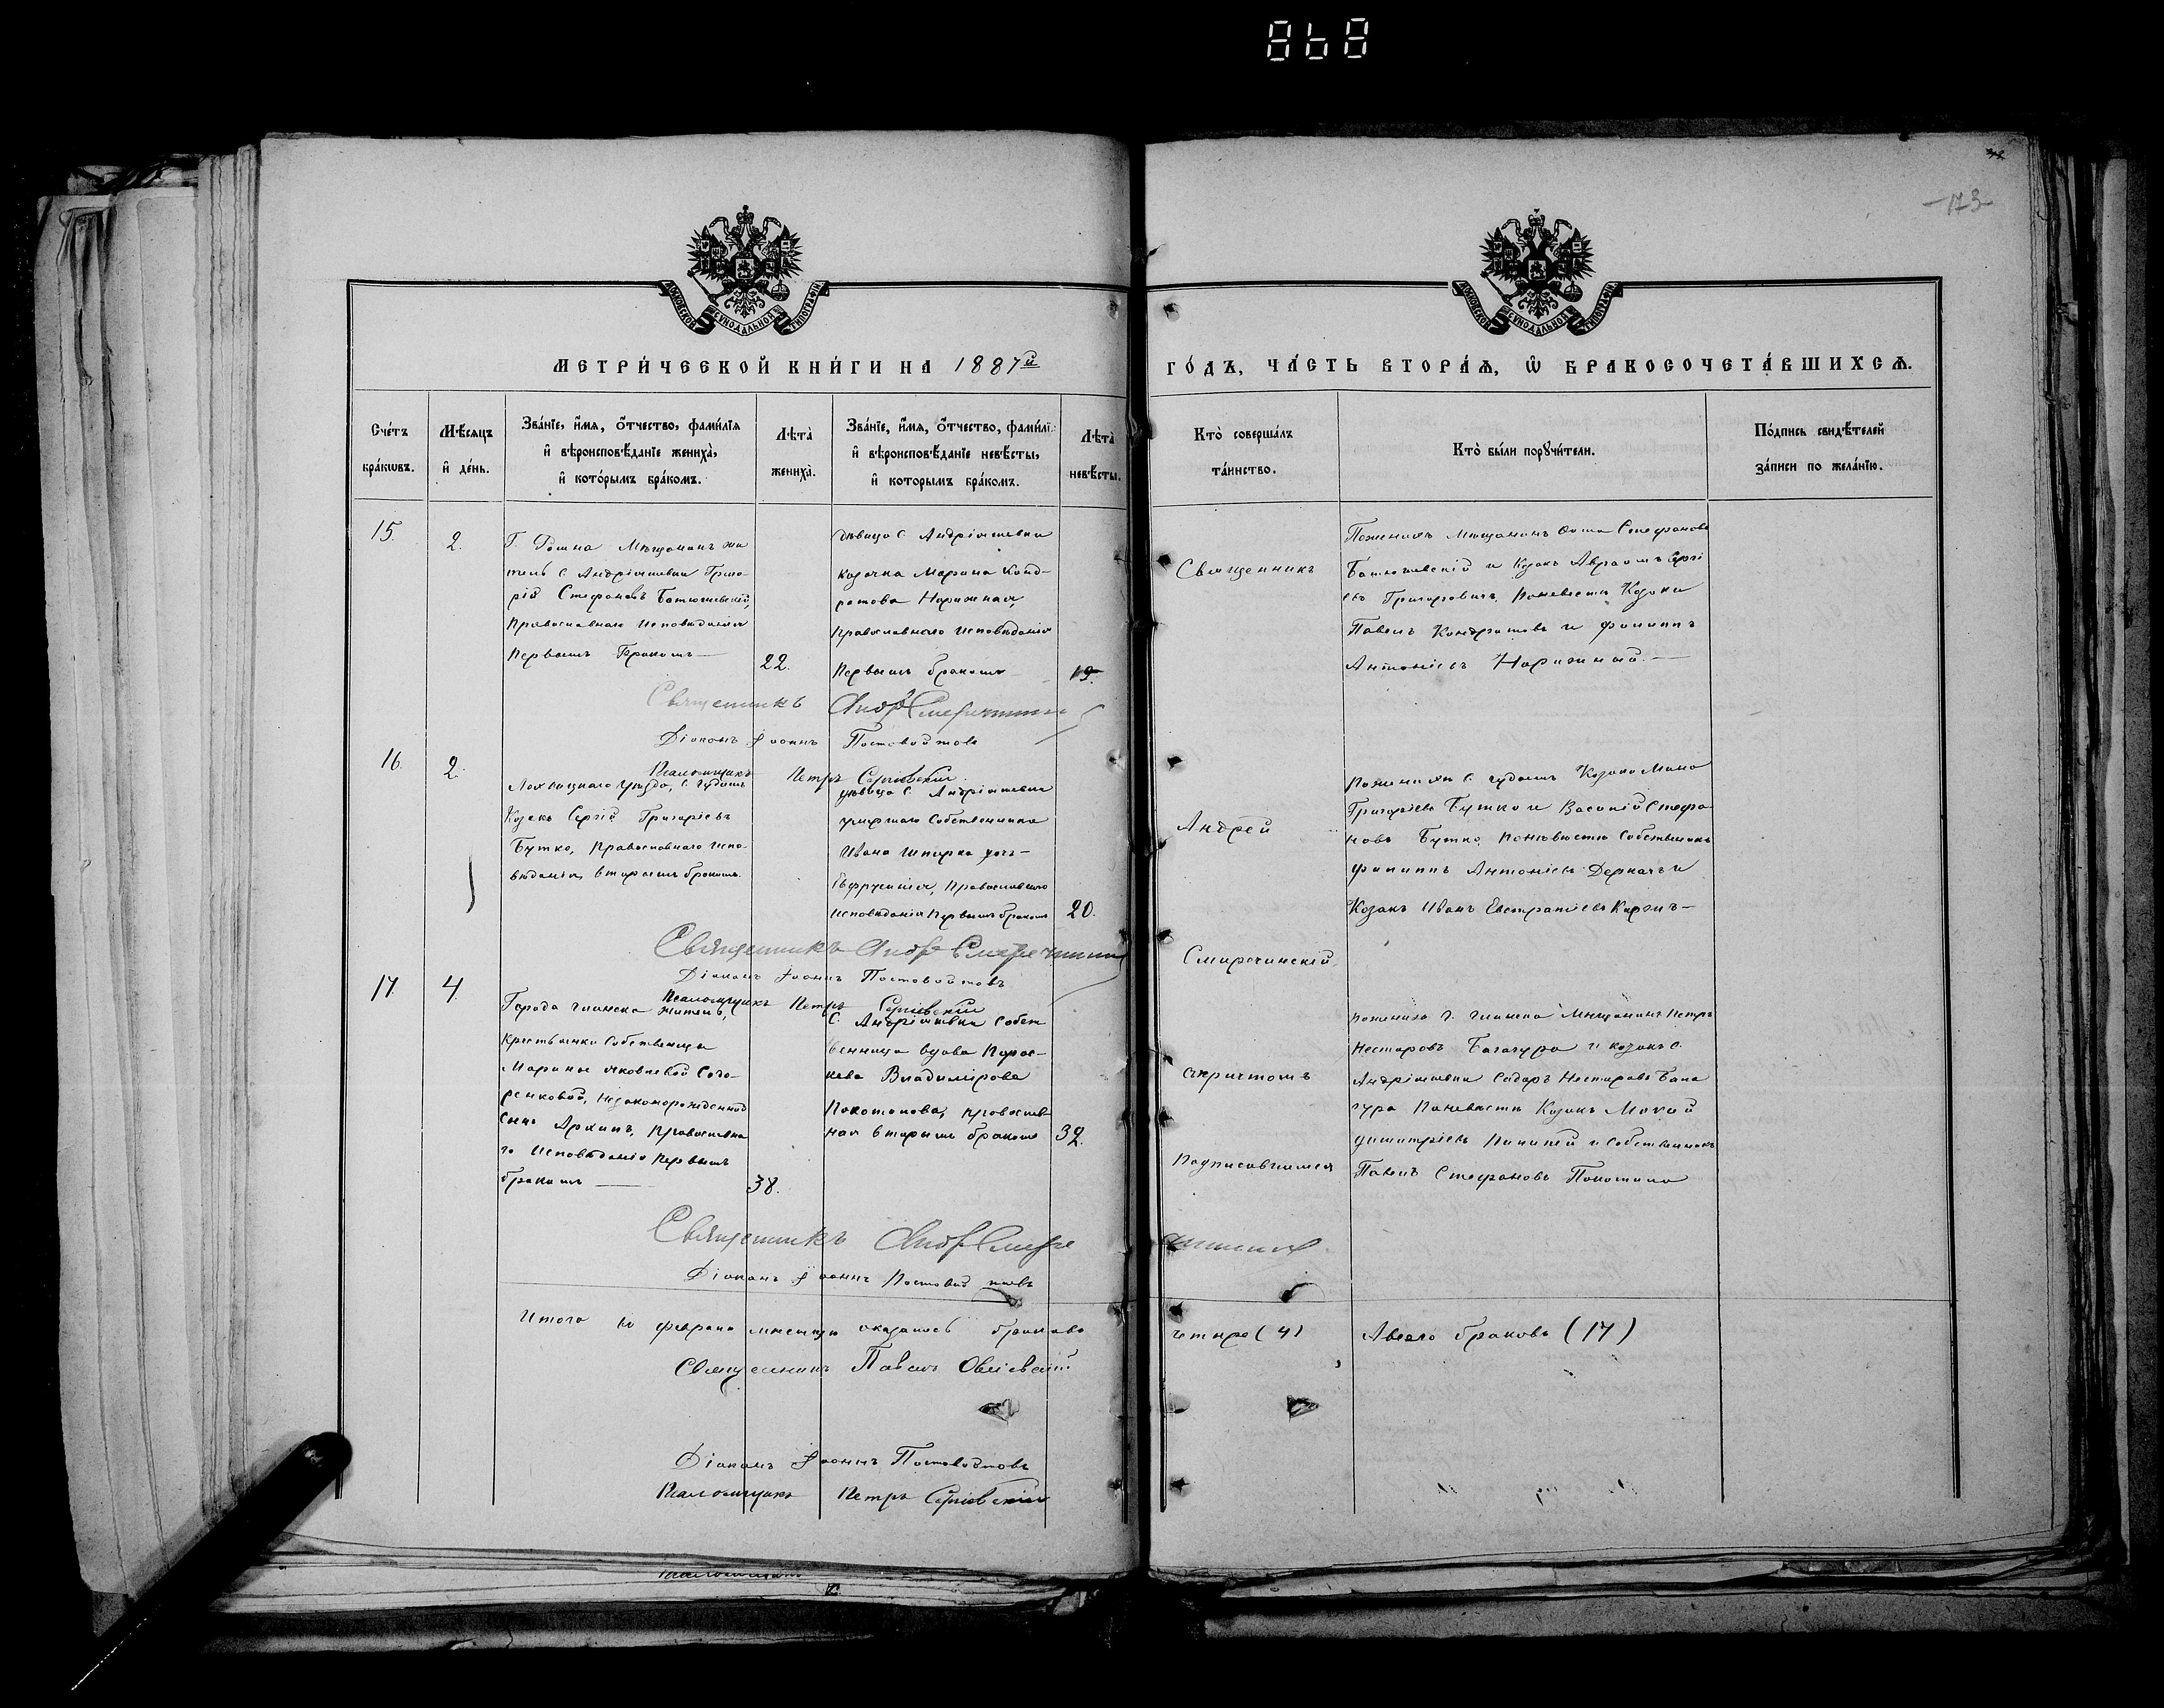 868
173
МЕТРИ́ЧЕСКОЙ КНИ́ГИ НА 1887й
ГО́ДЪ, ЧА́СТЬ ВТОРА́Ѧ, Ѡ҆ БРАКОСОЧЕТА́ВШИХСѦ.
Сче́тъ бра́кѡвъ.
Мѣ́сяцъ и҆ де́нь.
Зва́нїе, и҆́мя, ѻ҆́тчество, фами́лїя
и҆ вѣроисповѣ́данїе жениха̀,
и҆ кото́рымъ бра́комъ.
Лѣта̀ жениха̀.
Зва́нїе, и҆́мя, ѻ҆́тчество, фами́лї
и҆ вѣроисповѣ́данїе невѣ́сты,
и҆ которымъ бра́комъ.
Лѣта̀ невѣ́сты.
Кто̀ соверша́лъ
та́инство.
Кто̀ бы́ли порꙋчи́тели.
По́дпись свидѣ́телей
за́писи по жела́нїю.
15.
2.
Мѣщанинъ жи
тель с. Андріяшевки Григо-
рій Стефановъ Батюшевскій,
Православнаго Исповѣданія
Первымъ Бракомъ
22.
дѣвица с. Андріяшевки
козачка Марина Конд-
ратова Нарижная,
православнаго исповѣданія
первымъ бракомъ
19.
Священникъ
По женихѣ Мѣщанинъ Стефановъ
Батюшевскій и Козакъ Авраамъ
Григоровичъ, по невѣстѣ Козаки
Павелъ Кондратовъ и Филиппъ
Антоніевъ Нарижный.
Священникъ Андр Смеречинскій
Діаконъ Іоаннъ Постовойтовъ
Псаломщикъ Петръ Сергіевскій
16.
2.
Лохвицкаго уѣзда, с.
Козакъ Сергій Григоріевъ
Бутко, Православнаго Испо-
вѣданія, вторымъ бракомъ.
дѣвица с. Андріяшевки
Собственника
Ивана дочь
Евфросинія, Православнаго
исповѣданія Первымъ бракомъ
20.
Андрей
По женихѣ с. Козаки
Григоріевъ Бутко и Василій Стефа
новъ Бутко, по невѣстѣ Собственникъ
Филиппъ Антоніевъ Деркачъ и
Козакъ Иванъ Евстратіевъ
Священникъ Андр Смеречинскій
Смиречинскій
Діаконъ Іоаннъ Постовойтовъ
Псаломщикъ Петръ Сергіевскій
17.
4.
Города Глинска житель,
Крестьянки Собственницы
Марины Яковлевой
Незаконорожденный
Сынъ Архипъ, Православна
го Исповѣданія Первымъ
бракомъ
38.
с. Андріяшевки Собст
венница вдова Парас-
кева Владимірова
Покотилова, православ
ная вторымъ бракомъ
32.
съ причтомъ
Подписавшимся
По женихѣ г. Глинска Мѣщанинъ Петръ
Несторовъ Багачура и козакъ с.
Андріяшевки Сидоръ Несторовъ Бага
чура По невѣстѣ Козакъ Мокій
Димитріевъ и Собственникъ
Павелъ Стефановъ Покотило
Священникъ Андр Смеречинскій
Діаконъ Іоаннъ Постовойтовъ
Итого въ февралѣ мѣсяцѣ оказалось браковъ четыре (4) А всего браковъ (17)
Священникъ Павелъ
Діаконъ Іоаннъ Постовойтовъ
Псаломщикъ Петръ Сергіевскій